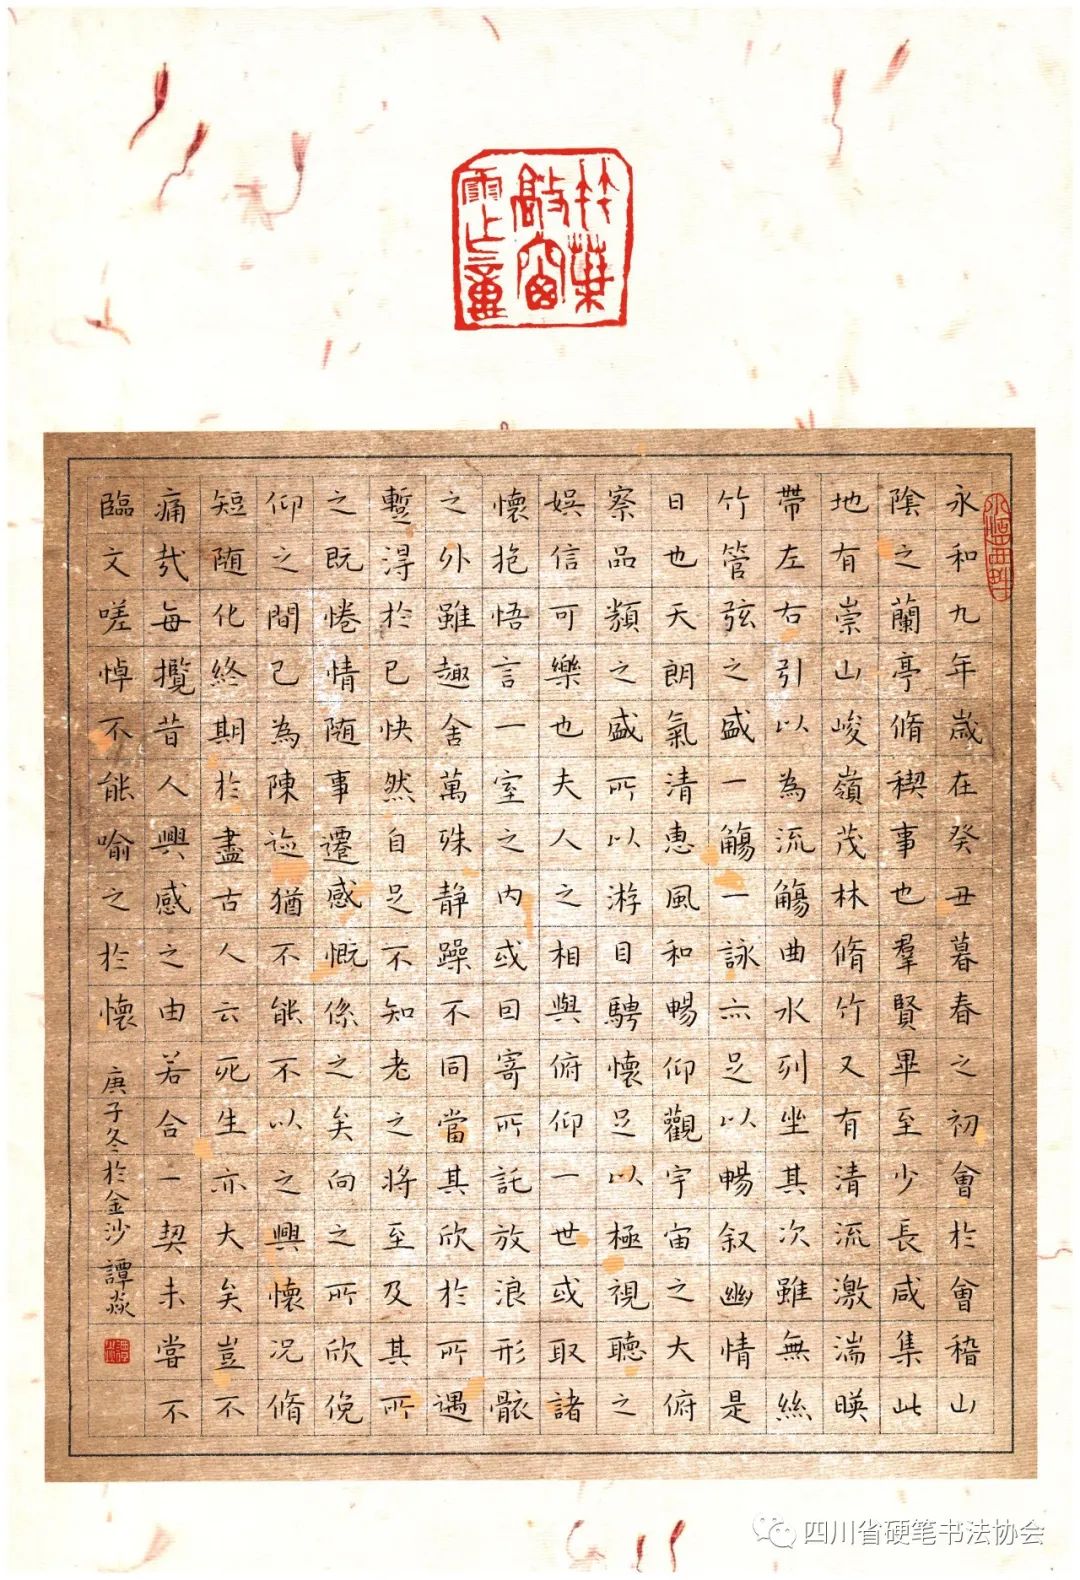 竹葉
敲窗
永和九年歲在癸丑暮春之初會於會稽山
陰之蘭亭脩稧事也羣賢畢至少長咸集此
地有崇山峻嶺茂林脩竹又有清流激湍暎
帶左右引以為流觴曲水列坐其次雖無絲
竹管弦之盛一觴一詠亦足以暢叙幽情是
日也天朗氣清惠風和暢仰觀宇宙之大俯
察品類之盛所以游目騁懷足以極視聽之
娛信可樂也夫人之相與俯仰一世或取諸
懷抱悟言一室之內或因寄所託放浪形骸
之外雖趣舍萬殊静躁不同當其欣於所遇
蹔得於己快然自足不知老之將至及其所
之既惓情随事遷感慨係之矣向之所欣俛
仰之間已為陳迹猶不能不以之興懷況脩
短随化終期於盡古人云死生亦大矣豈不
痛哉每攬昔人興感之由若合一契未嘗不
臨文嗟悼不能喻之於懷 庚子冬於金沙 譚焱
四川省硬笔书法协会